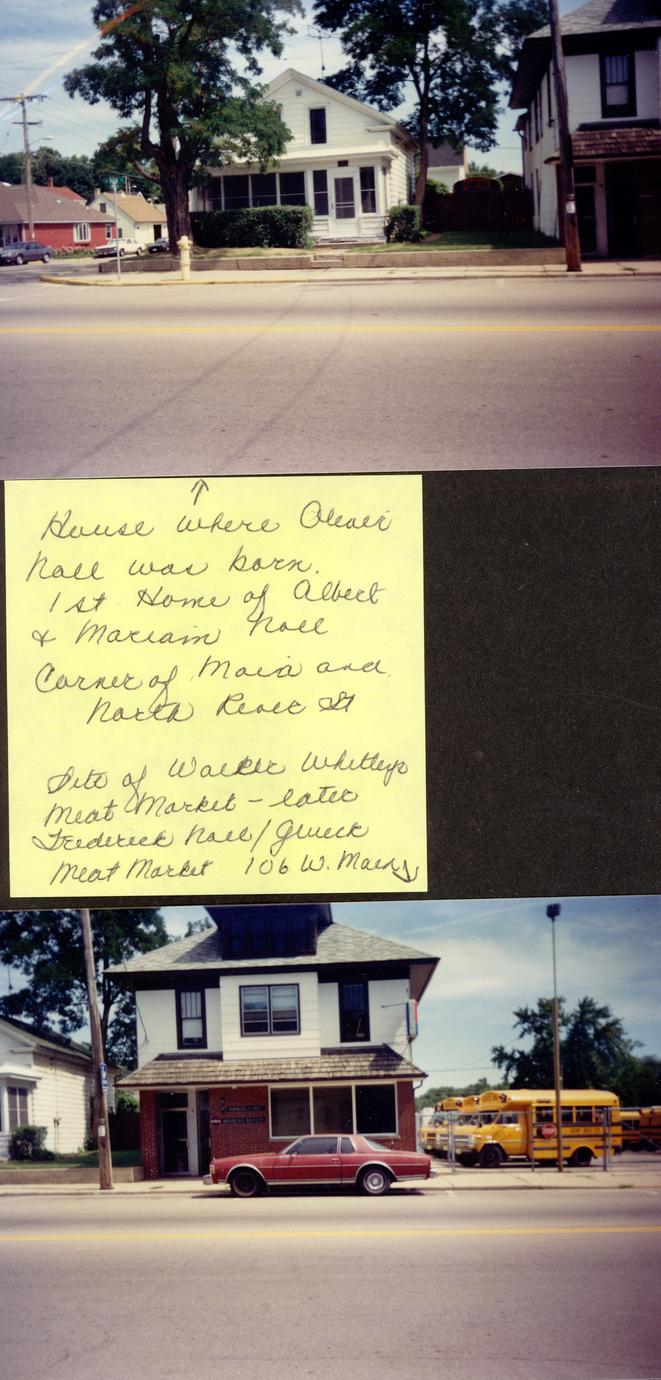 House where Oliver
Noll was born.
1st Home of Albert
& Mariam Noll
Corner of Main and
North River St
Site of Walker Whitleys
Meat Market - later
Frederick Noll/Gweck
Meat Market 106 W. Main